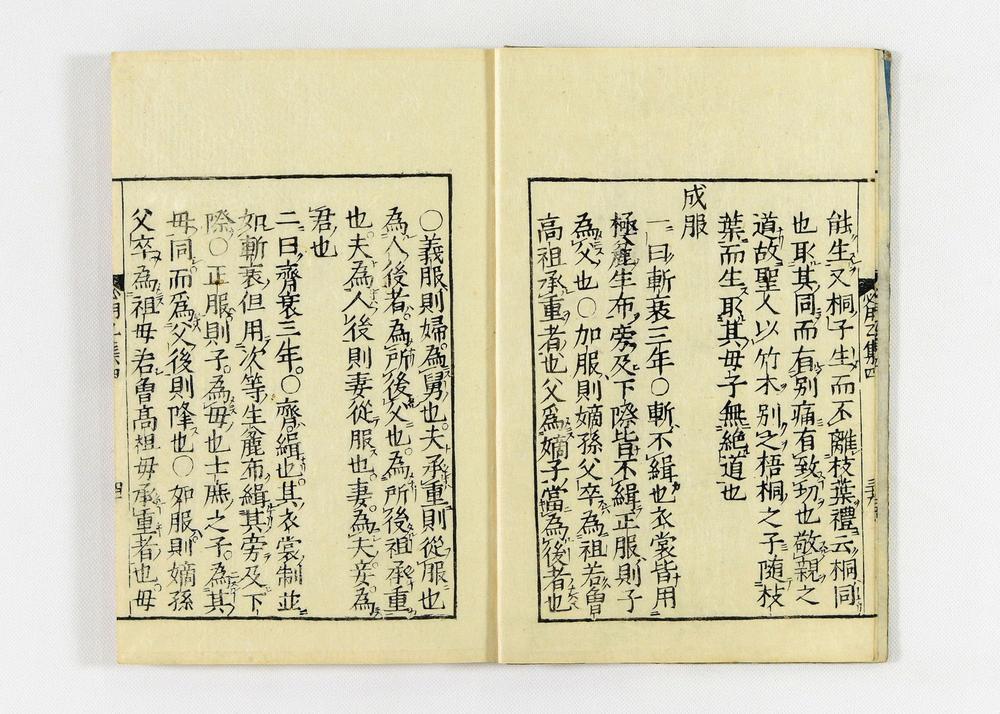 能生又桐子生而不離枝葉禮云桐同
也取其同而有別痛有致切也敬親之
道故聖人以竹木別之梧桐之子随枝
葉而生取其母子無絶道也
成服
一曰斬衰三年○斬不緝也衣裳皆用
極麄生布旁及下際皆不緝正服則子
為父也○加服則嫡孫父卒為祖若曽
高祖承重者也父為嫡子當為後者也
○義服則婦為舅也夫承重則從服也
為人後者為所後父也為所後祖承重
也夫為人後則妻從服也妻為夫妾為
君也
二曰齊衰三年○齊緝也其衣裳制並
如斬衰但用次等生麄布緝其旁及下
際○正服則子為母也士庶之子為其
母同而爲父後則降也○加服則嫡孫
父卒為祖母若曽高祖母承重者也母